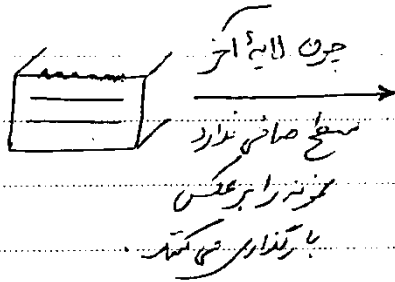 چون لایهٔ آخر
سطح صافی ندارد
نمونه را برعکس
بارگذاری می کنند.